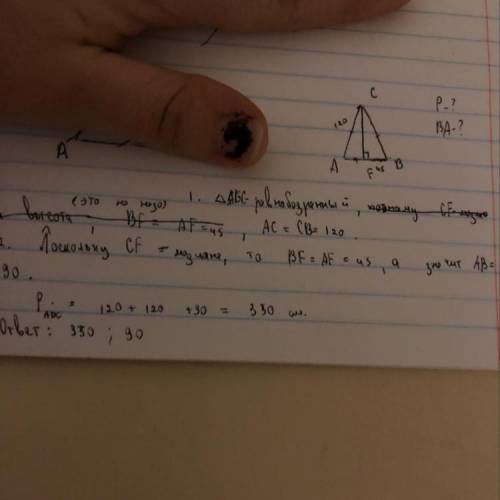 C
P-?
BA-?
120
A
A
F
45
B
(это не надо) 1. △ABC равнобедренный,
высота, BF = AF = 45, AC = CB = 120.
Поскольку CF = медиана, то BF = AF = 45, а значит AB =
90.
P ABC = 120 + 120 + 90 = 330 см.
Ответ: 330 ; 90